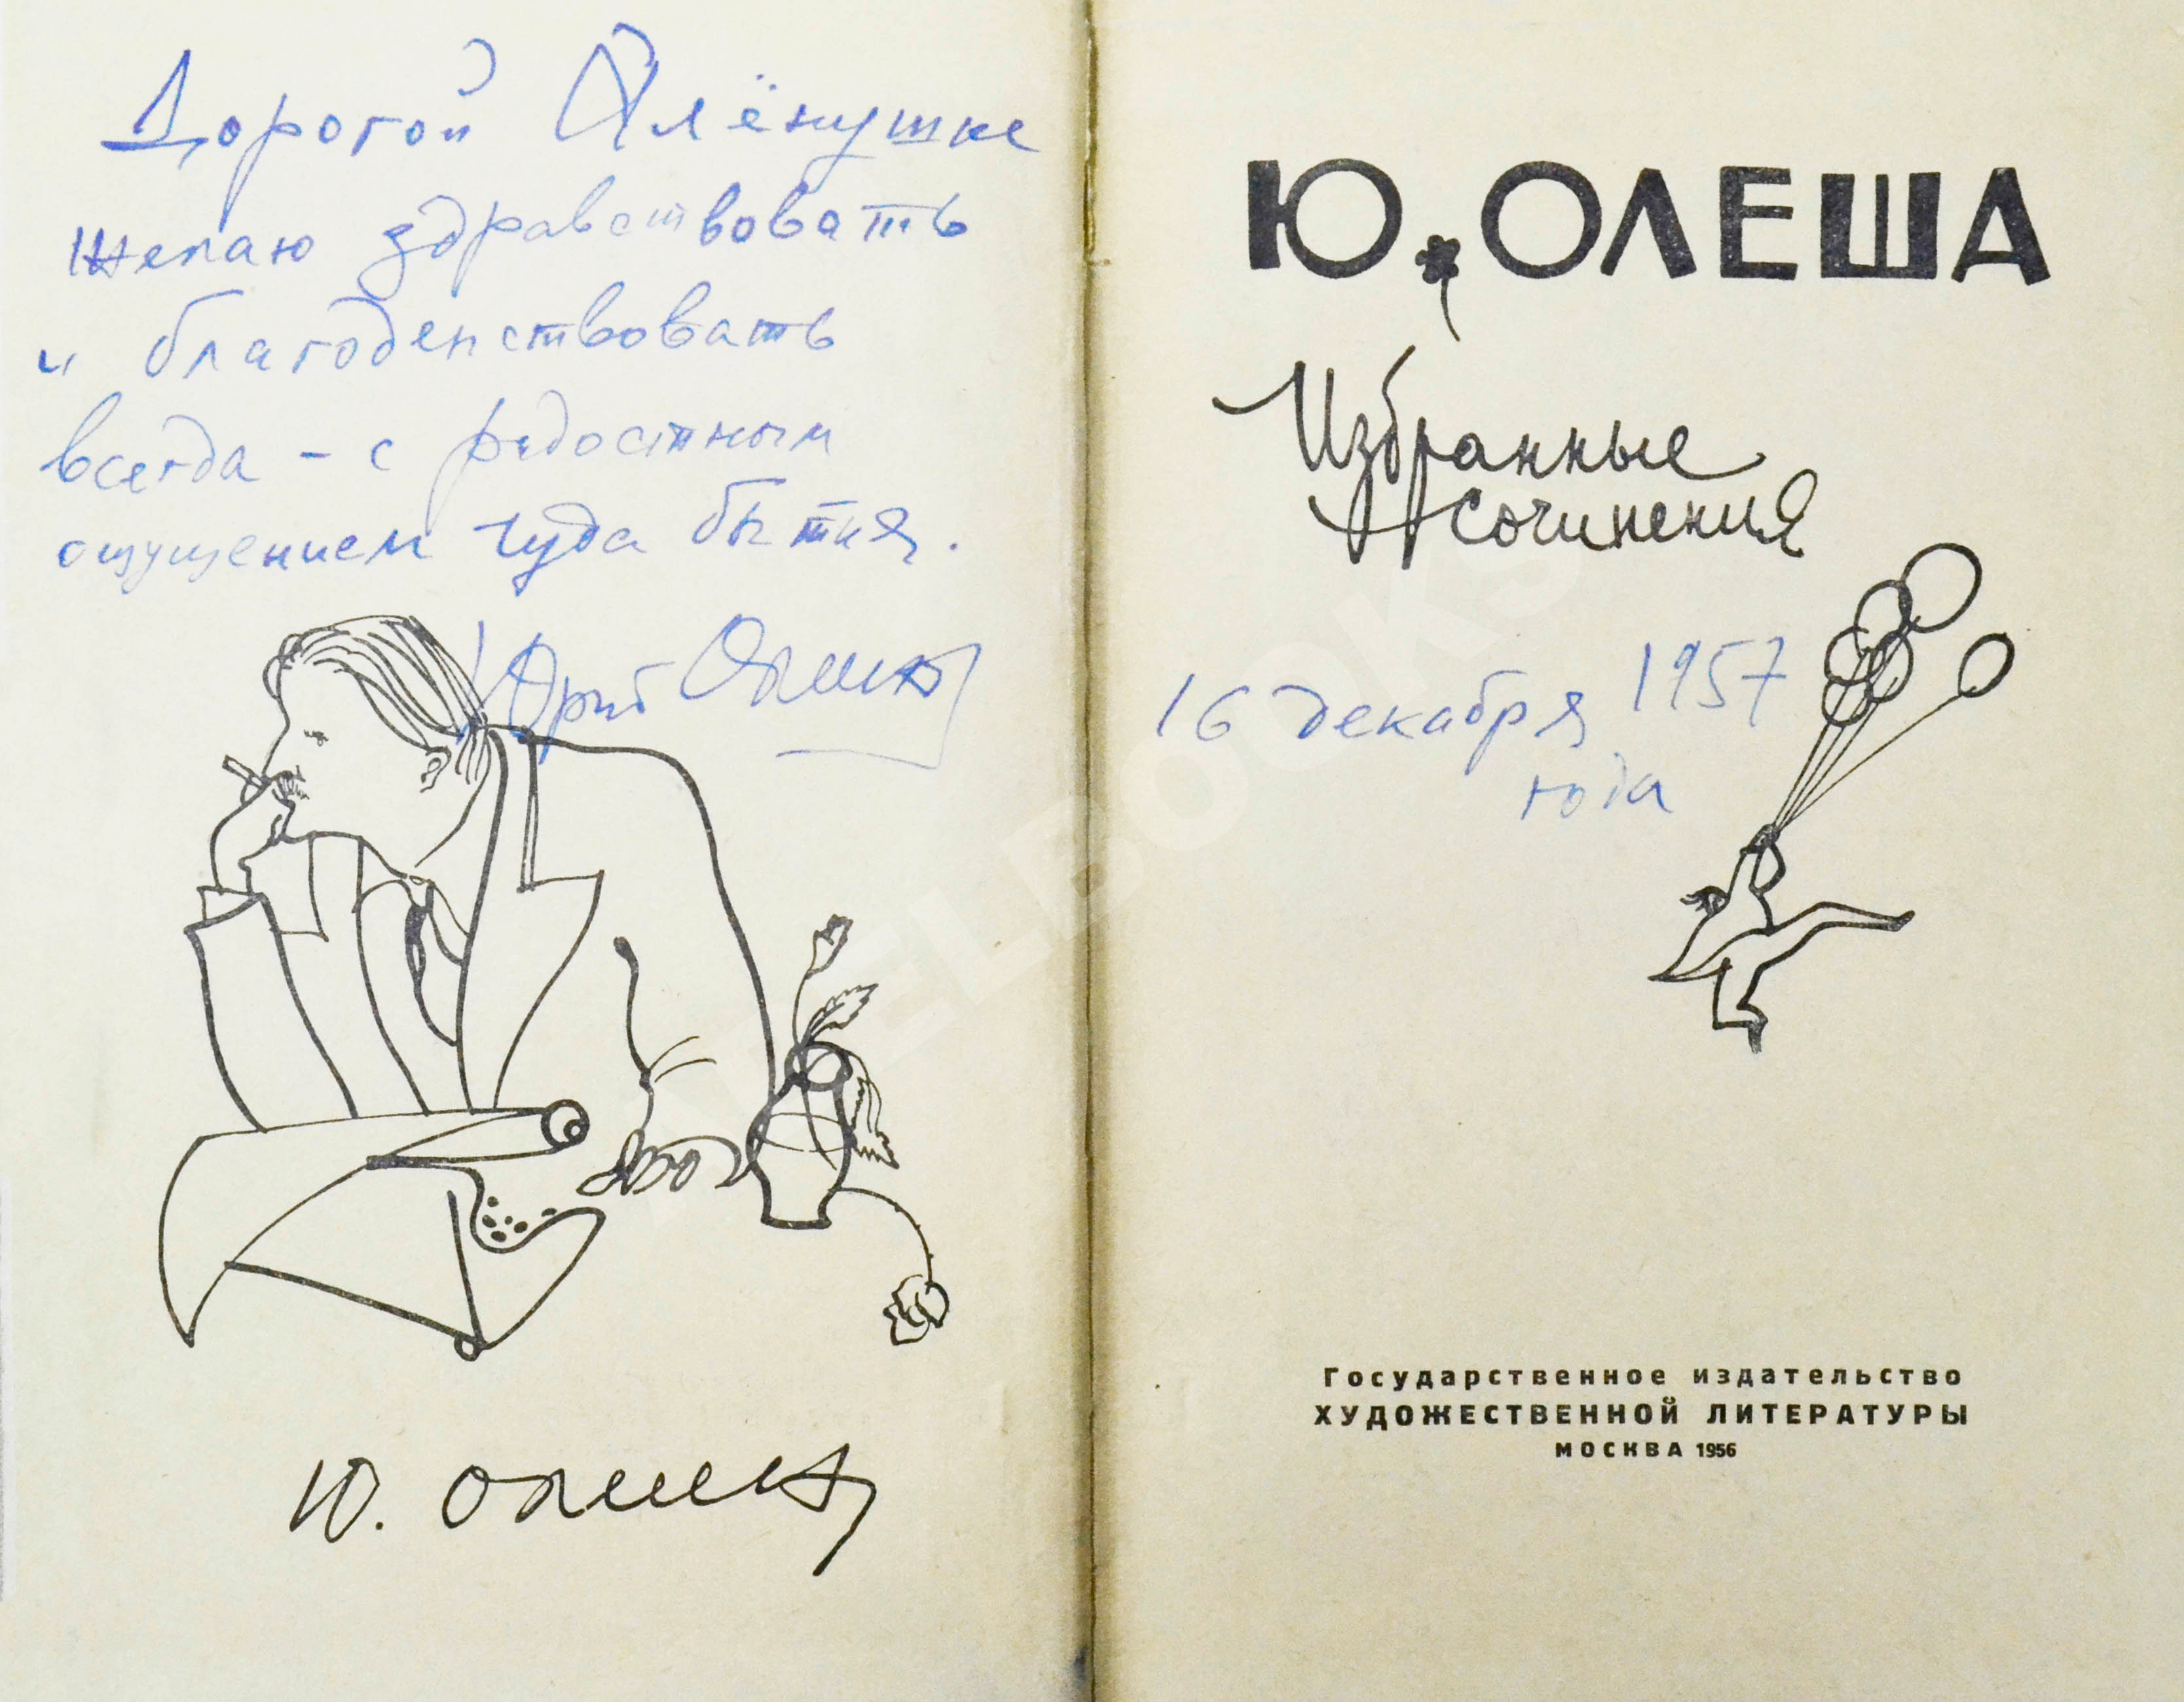 Дорогой Алёнушке
желаю здравствовать
и благоденствовать
всегда – с радостным
ощущением чуда бытия.
Юрий Олеша
Ю. Олеша
Ю. ОЛЕША
Избранные
сочинения
16 декабря 1957
года
Государственное издательство
ХУДОЖЕСТВЕННОЙ ЛИТЕРАТУРЫ
МОСКВА 1956